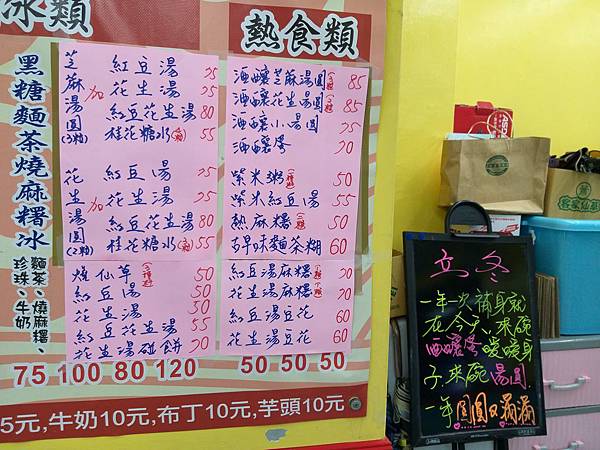 冰類
熱食類
黑糖麵茶燒麻糬冰
麵茶、燒麻糬、
珍珠、牛奶
芝麻湯圓(3粒)
加
紅豆湯 75
花生湯 75
紅豆花生湯 80
桂花糖水 55
花生湯圓(2粒)
加
紅豆湯 75
花生湯 75
紅豆花生湯 80
桂花糖水 55
燒仙草 50
紅豆湯 50
花生湯 50
紅豆花生湯 55
花生湯碰餅 70
酒釀芝麻湯圓 85
酒釀花生湯圓 85
酒釀小湯圓 75
酒釀蛋 70
紫米粥 50
紫米紅豆湯 55
熱麻糬 50
古早味麵茶糊 60
紅豆湯麻糬 70
花生湯麻糬 70
紅豆湯豆花 60
花生湯豆花 60
75 100 80 120
50 50 50
5元,牛奶10元,布丁10元,芋頭10元
立冬
一年一次補身就
在今天、來碗
酒釀蛋暖暖身
子、來碗湯圓
一年圓圓又滿滿
客家仙草